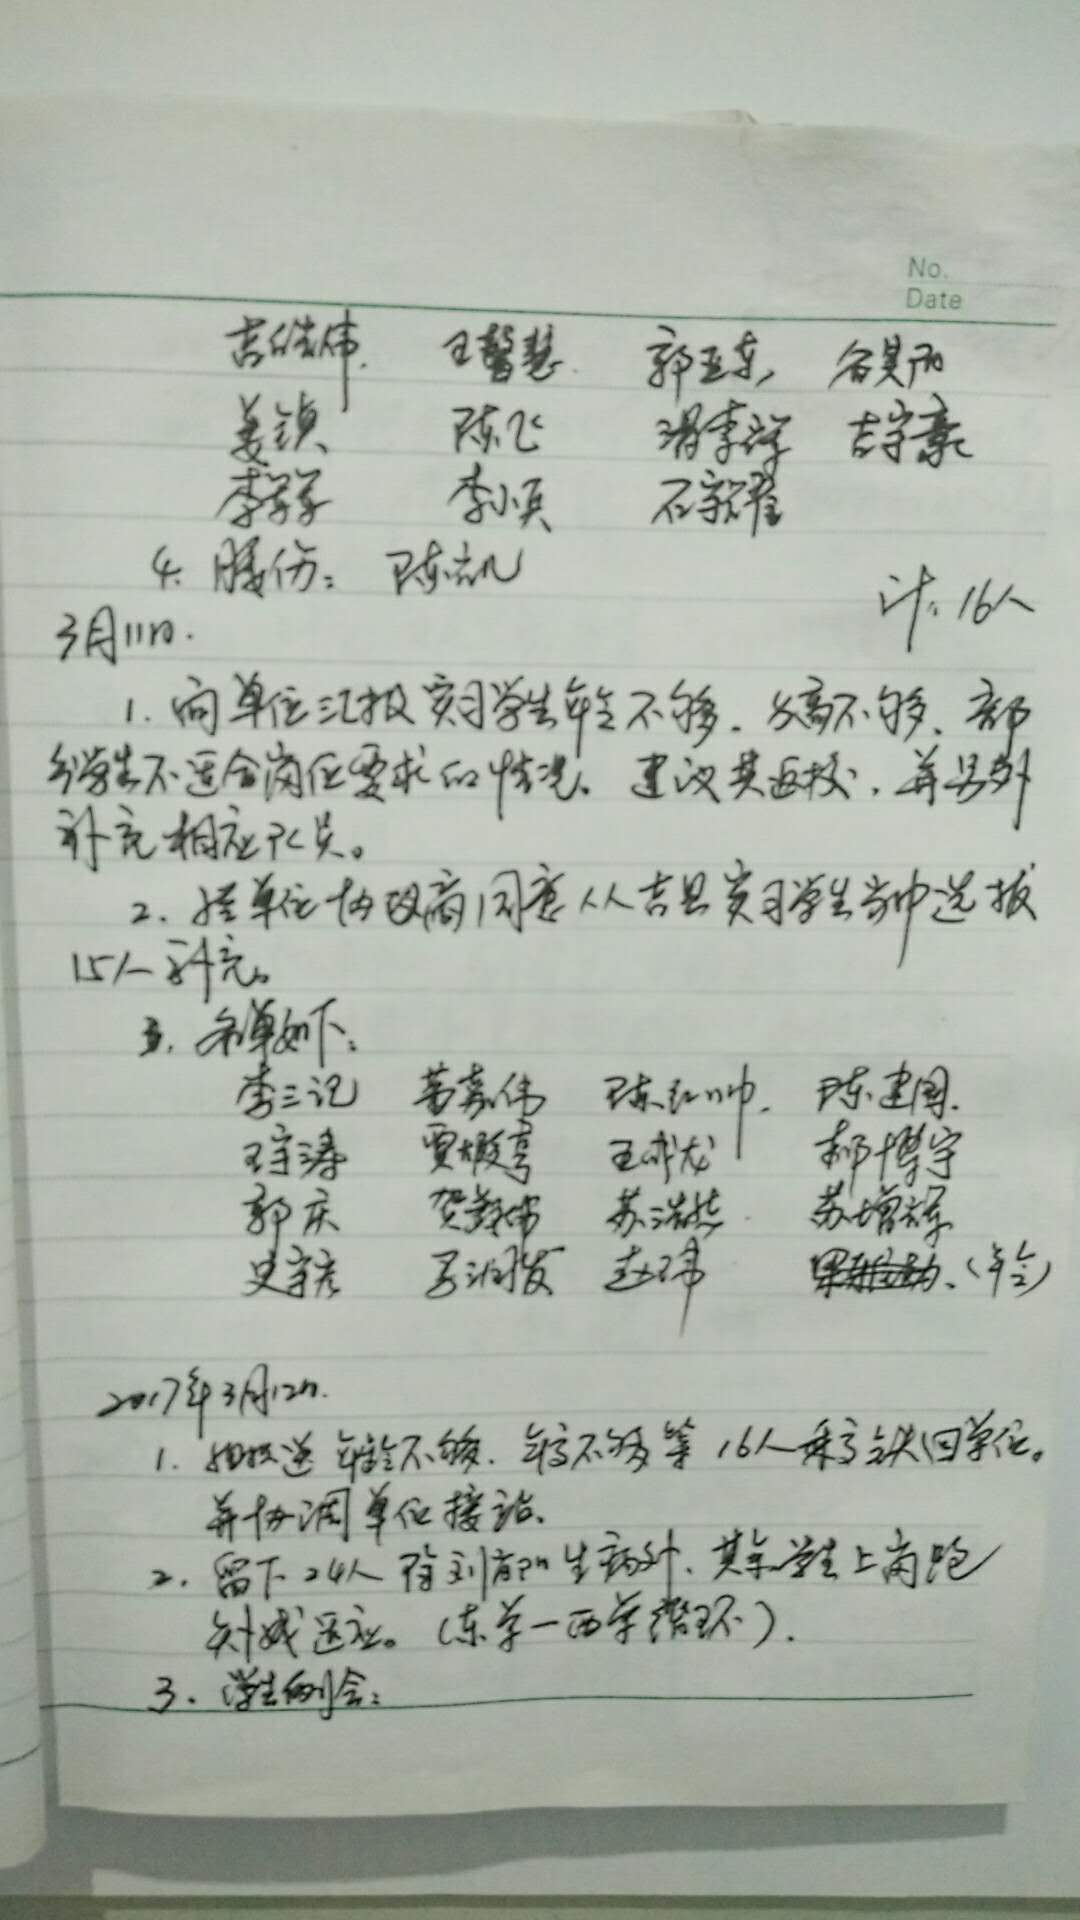 No.
Date
吉 伟 王馨慧 郭亚东 谷昊雨
姜镇 陈飞 李祥 吉宇豪
李 李小兵 石宗耀
4. 腰伤： 陈凯
计：16人
3月11日.
1. 向单位汇报实习学生年龄不够、身高不够、部
分学生不适合岗位要求的情况。建议其返校，并另外
补充相应队员。
2. 经单位协商同意从吉县实习学生当中选拔
15人补充。
3. 名单如下：
李三记 董嘉伟 陈红帅 陈建国
王宇涛 贾 王成龙 郝博宇
郭庆 贺 伟 苏浩然 苏增辉
史宇彦 马润发 赵玮 （年令）
2017年3月12日.
1. 护送年龄不够、身高不够等16人乘高铁回单位。
并协调单位接站。
2. 留下24人除刘 生病外、其余学生上岗跑
适应。（东学—西学 ）.
3. 学生例会：